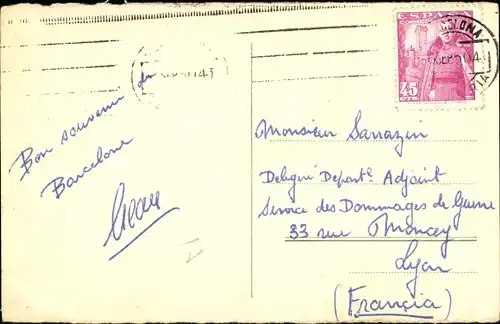 ESPAÑA
45
CTS
Bon souvenir de
Barcelone
Monsieur Sarrazin
Délégué Départl. Adjoint
Service des Dommages de Guerre
33 rue Moncey
Lyon
(Francia)